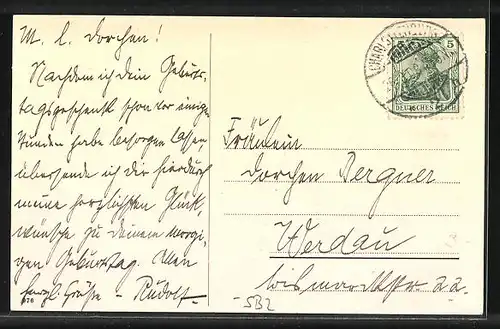 M. l. Dorchen!
Nachdem ich dein Geburts-
tagsgeschenk schon vor einigen
Stunden habe besorgen lassen
übersende ich dir hierdurch
meine herzlichsten Glück-
wünsche zu Deinem morgi-
gen Geburtstag. Allen
herzl. Grüße - Rudolf -
976
5
DEUTSCHES REICH
Fräulein
Dorchen Bergner
Werdau
Bismarckstr. 22.
SB2